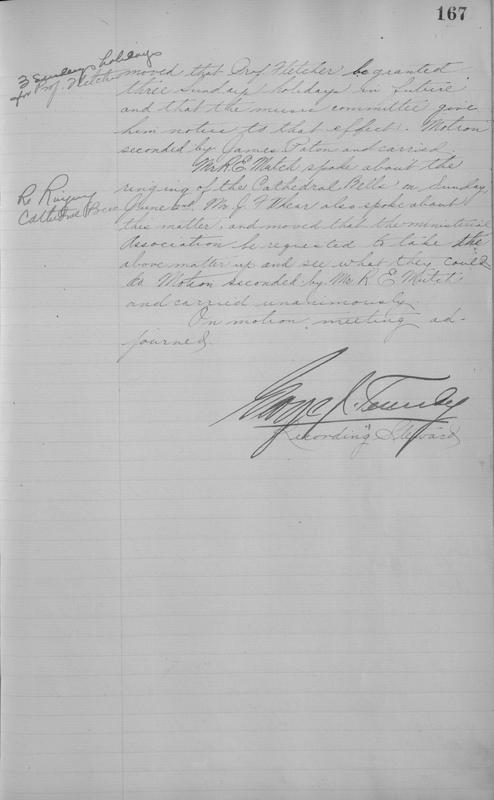 167
3 Sundays holidays
for Prof. Fletcher
moved that Prof Fletcher be granted
three Sunday holidays in future
and that the music committee give
him notice to that effect. Motion
seconded by James Paton and carried.
Mr R. E. Mutch spoke about the
Re Ringing
Cathedral Bells
ringing of the Cathedral Bells on Sunday
June 2nd. Mr J. F. Whear also spoke about
this matter, and moved that the ministerial
Association be requested to take the
above matter up and see what they could
do Motion seconded by Mr R E Mutch
and carried unanimously.
On motion meeting ad-
journed.
Geo. J.
Recording Steward